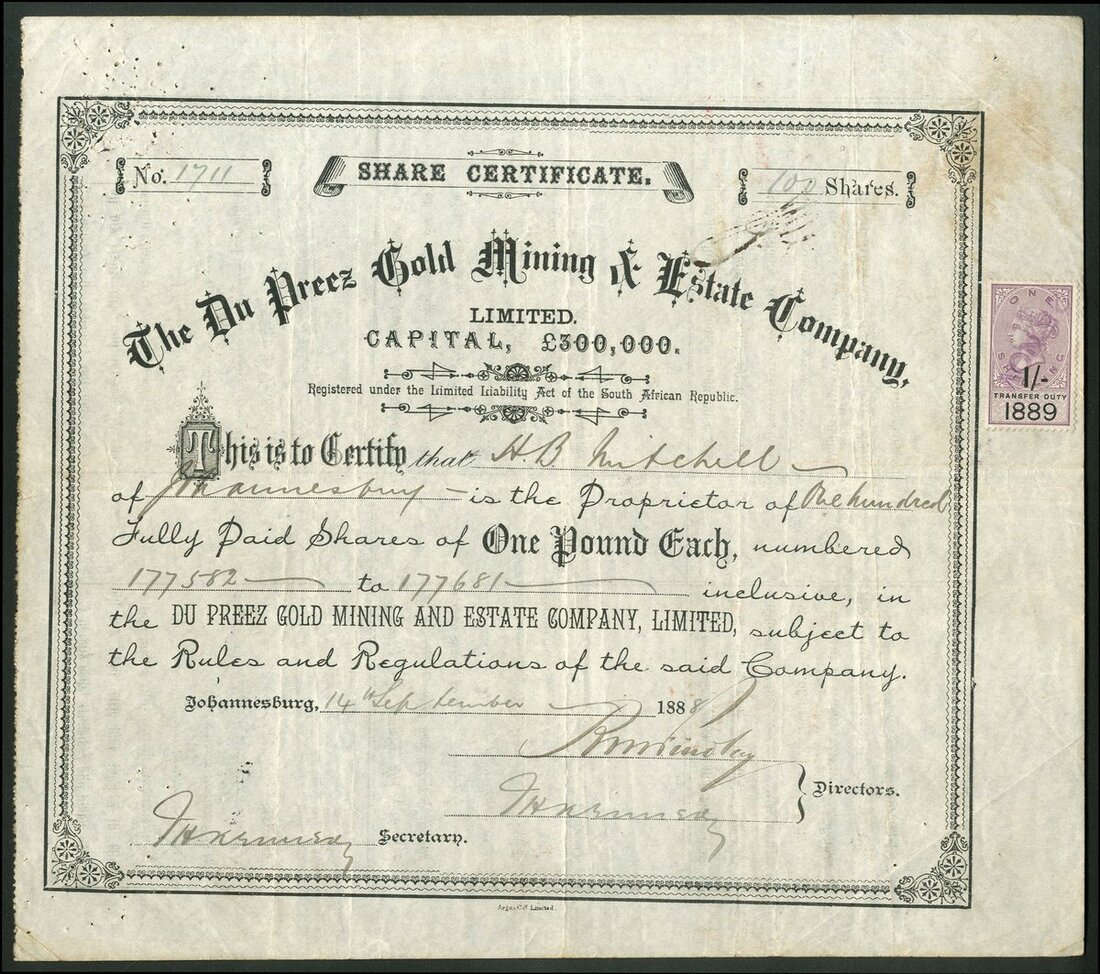 No. 1711
SHARE CERTIFICATE.
100 Shares.
The Du Preez Gold Mining & Estate Company,
LIMITED.
CAPITAL, £300,000.
Registered under the Limited Liability Act of the South African Republic.
ONE
SHILLING
1/-
TRANSFER DUTY
1889
This is to Certify that H. B Mitchell
of Johannesburg is the Proprietor of One hundred
Fully Paid Shares of One Pound Each, numbered
177582 to 177681 inclusive, in
the DU PREEZ GOLD MINING AND ESTATE COMPANY, LIMITED, subject to
the Rules and Regulations of the said Company.
Johannesburg, 14th September 1888
Directors.
Secretary.
Argus Coy. Limited.